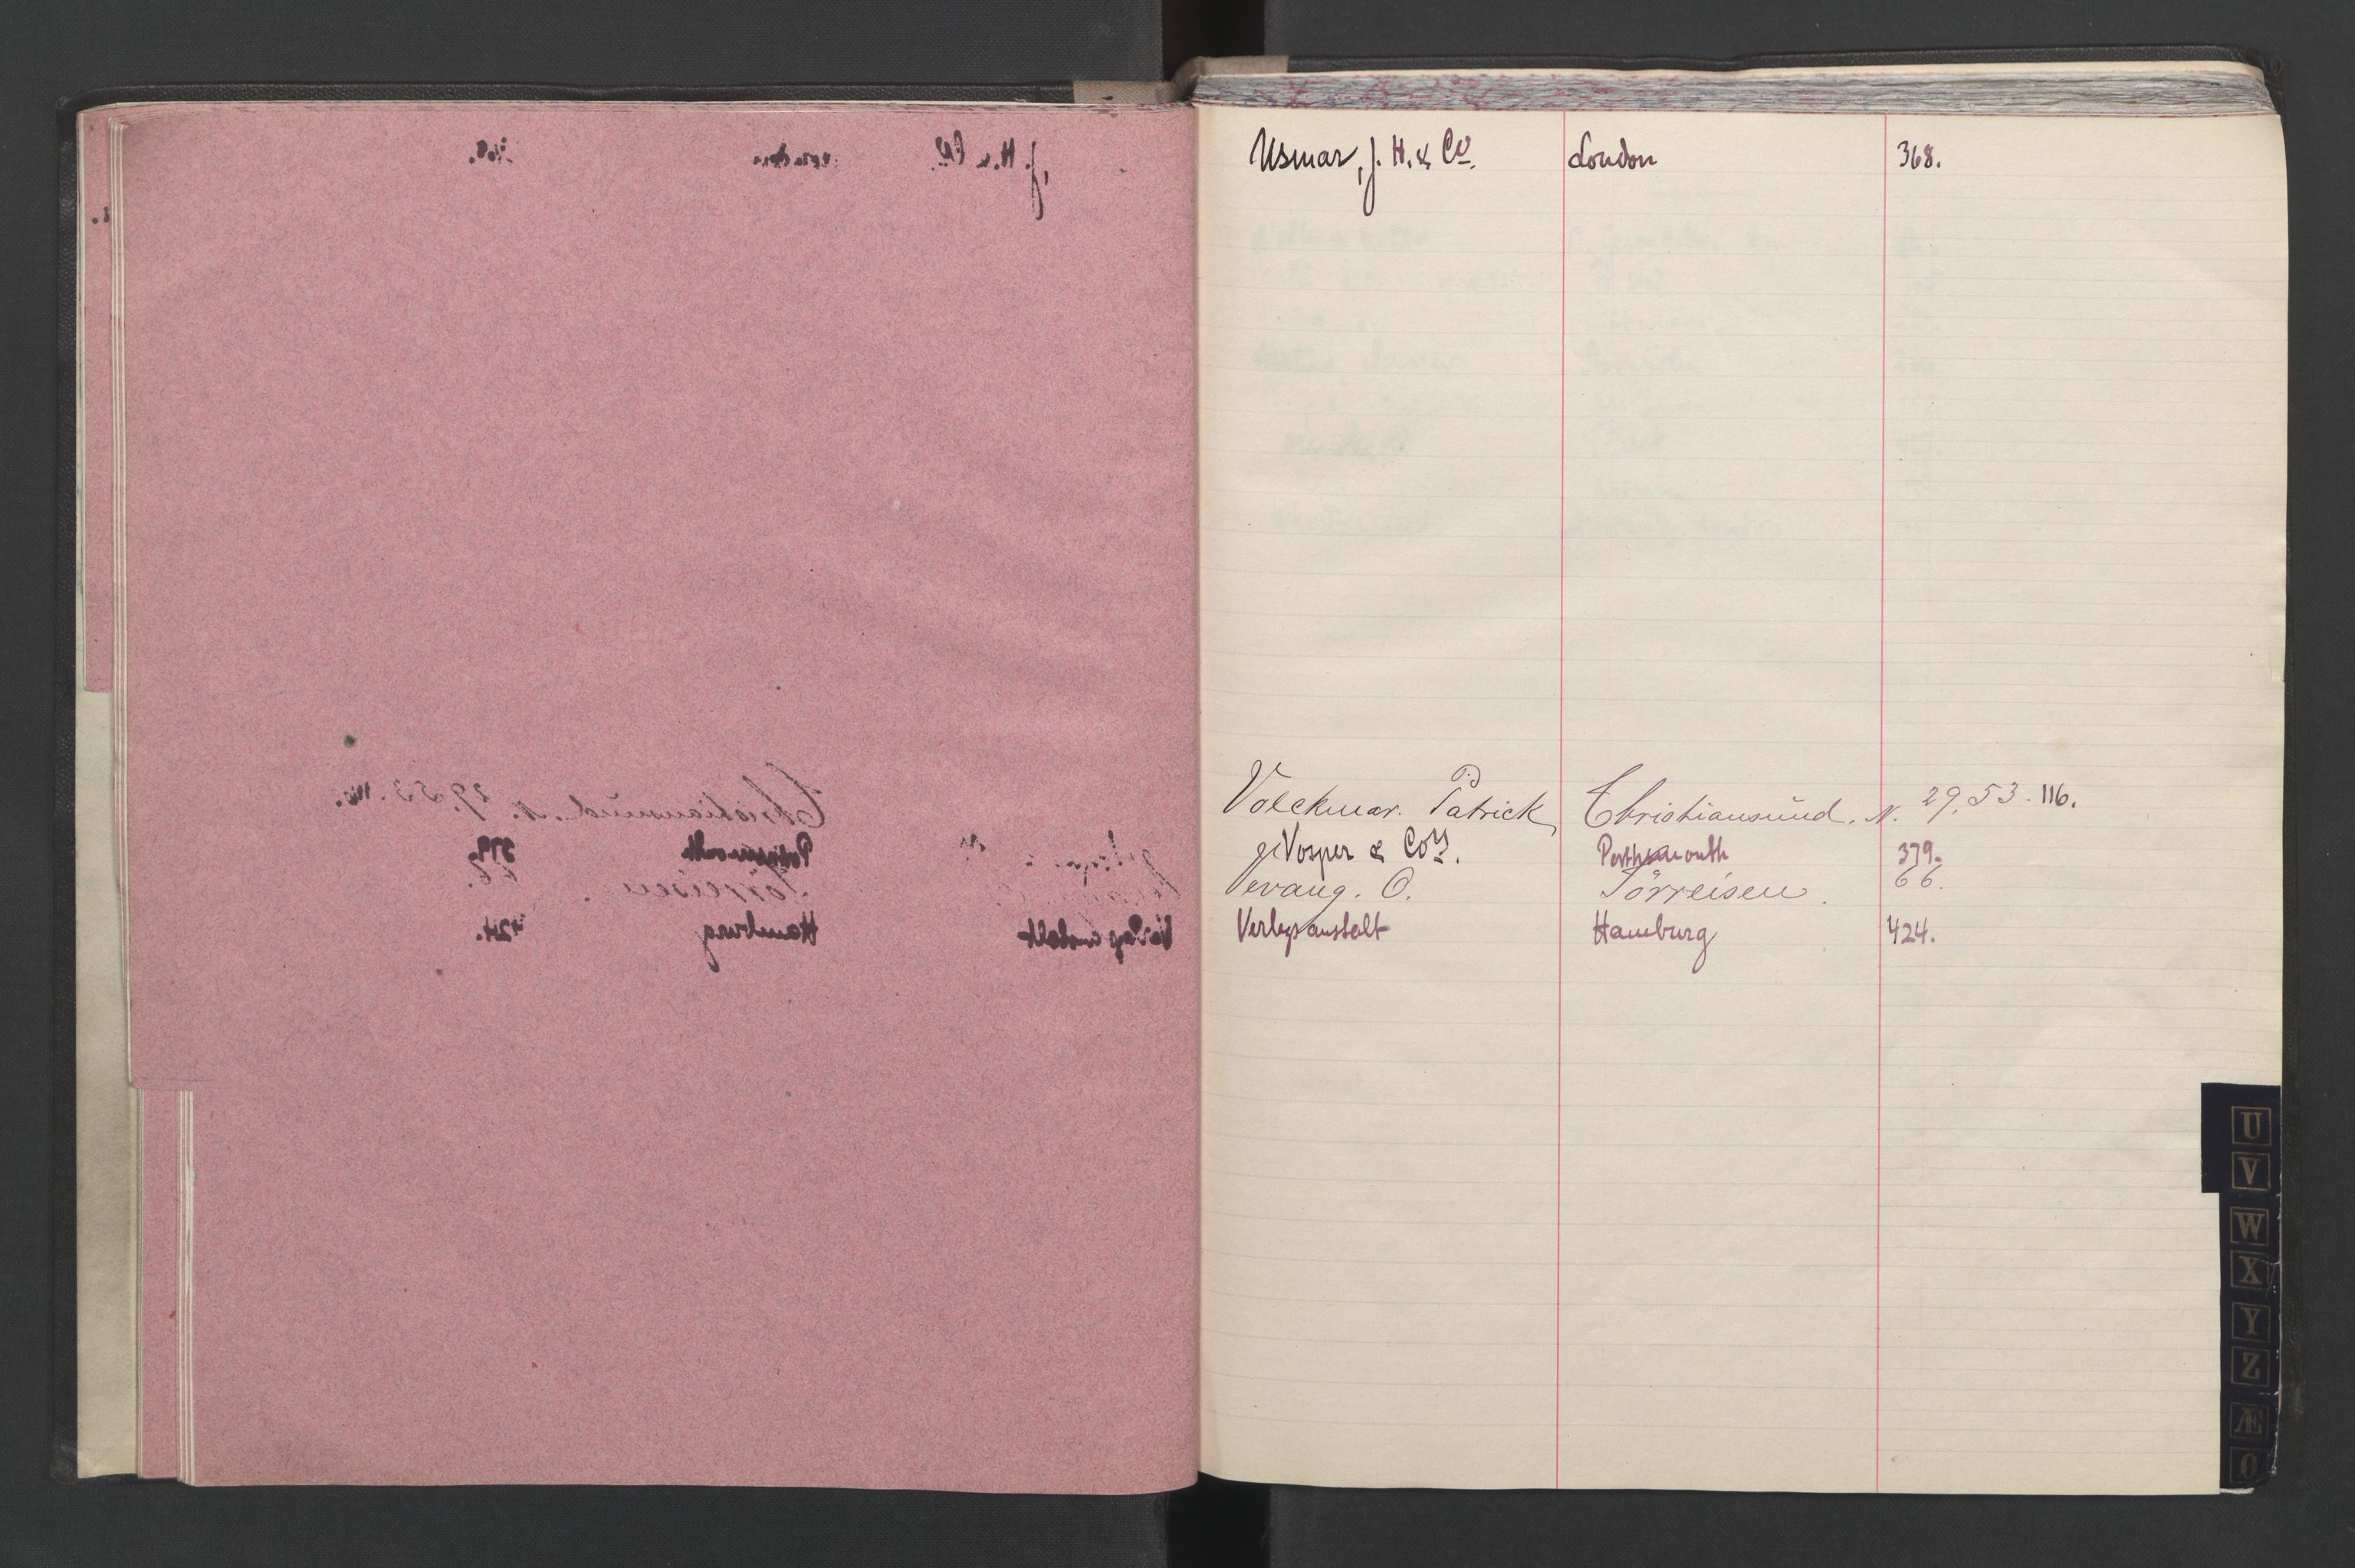 Usmar, J. H. & Co. London 368.
Volckmar. Patrick Christiansund. N. 29. 53. 116.
Vosper & Coy. Porthsmouth 379.
Vevang. O. Törreisen. 66.
Verlagsanstalt Hamburg 424.
U
V
W
X
Y
Z
Æ
O